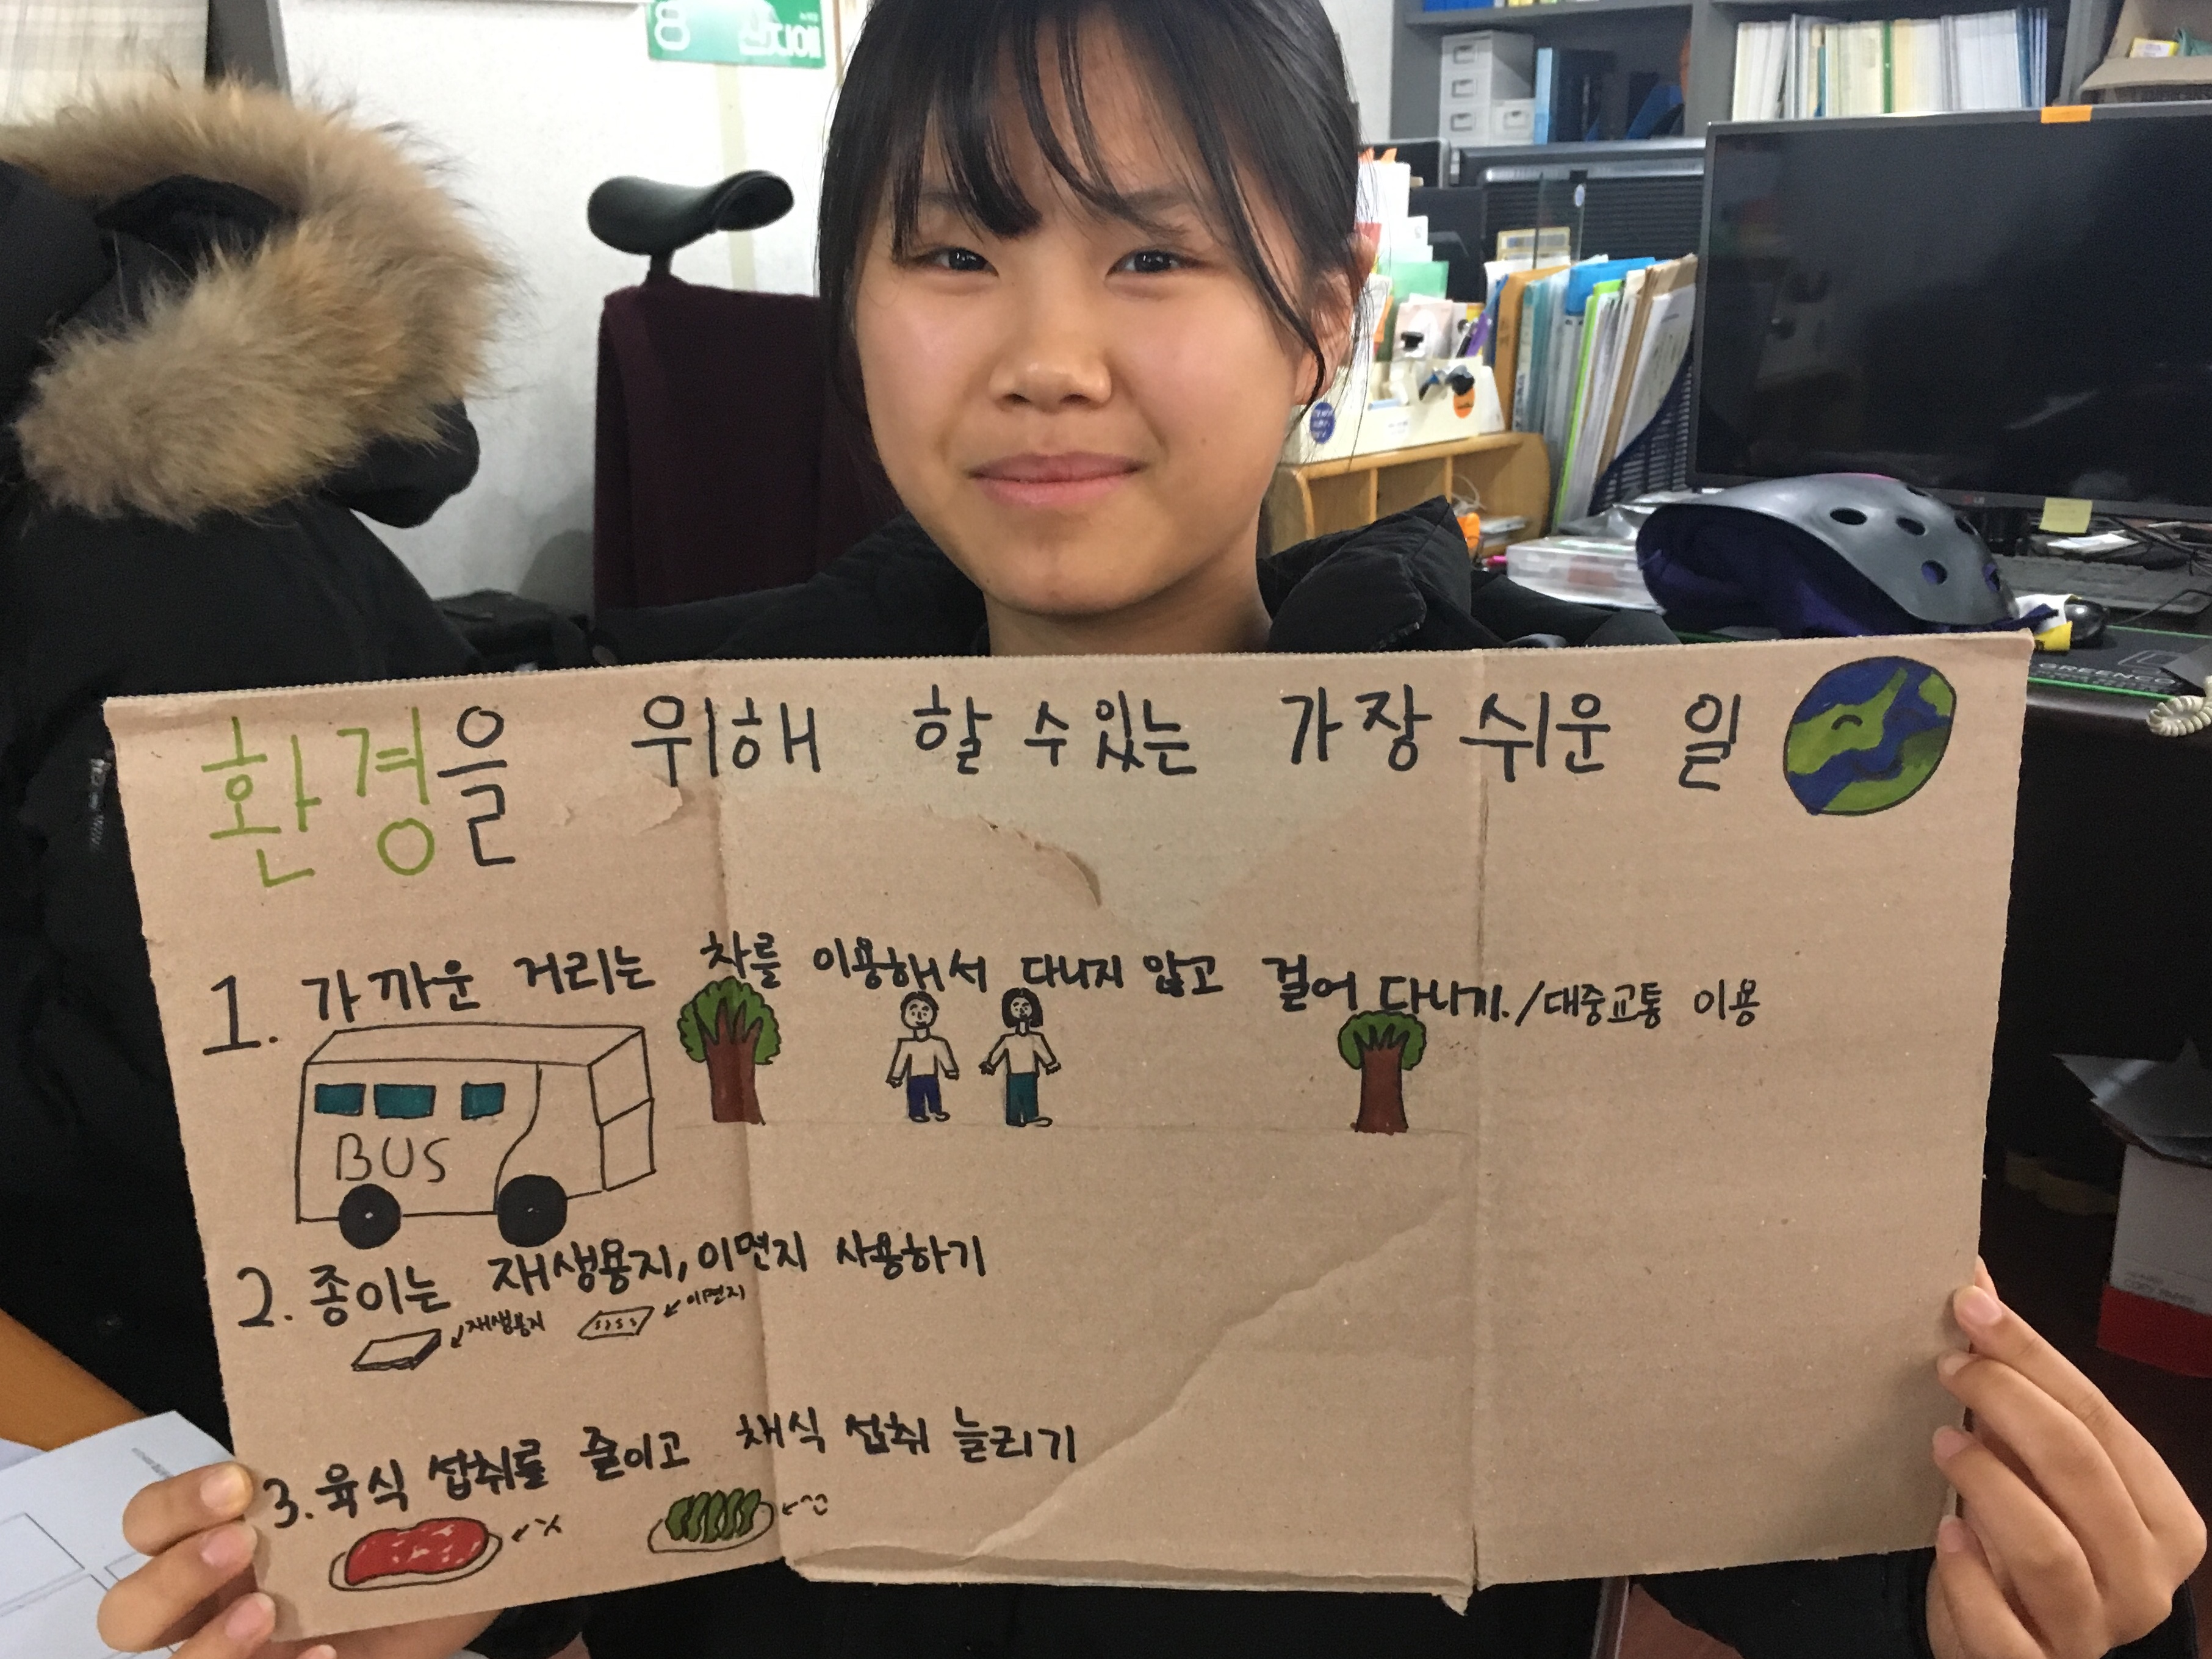 환경을 위해 할 수 있는 가장 쉬운 일
1. 가까운 거리는 차를 이용해서 다니지 않고 걸어 다니기. / 대중교통 이용
BUS
2. 종이는 재생용지, 이면지 사용하기
재생용지
이면지
3. 육식 섭취를 줄이고 채식 섭취 늘리기
LG
GREENC